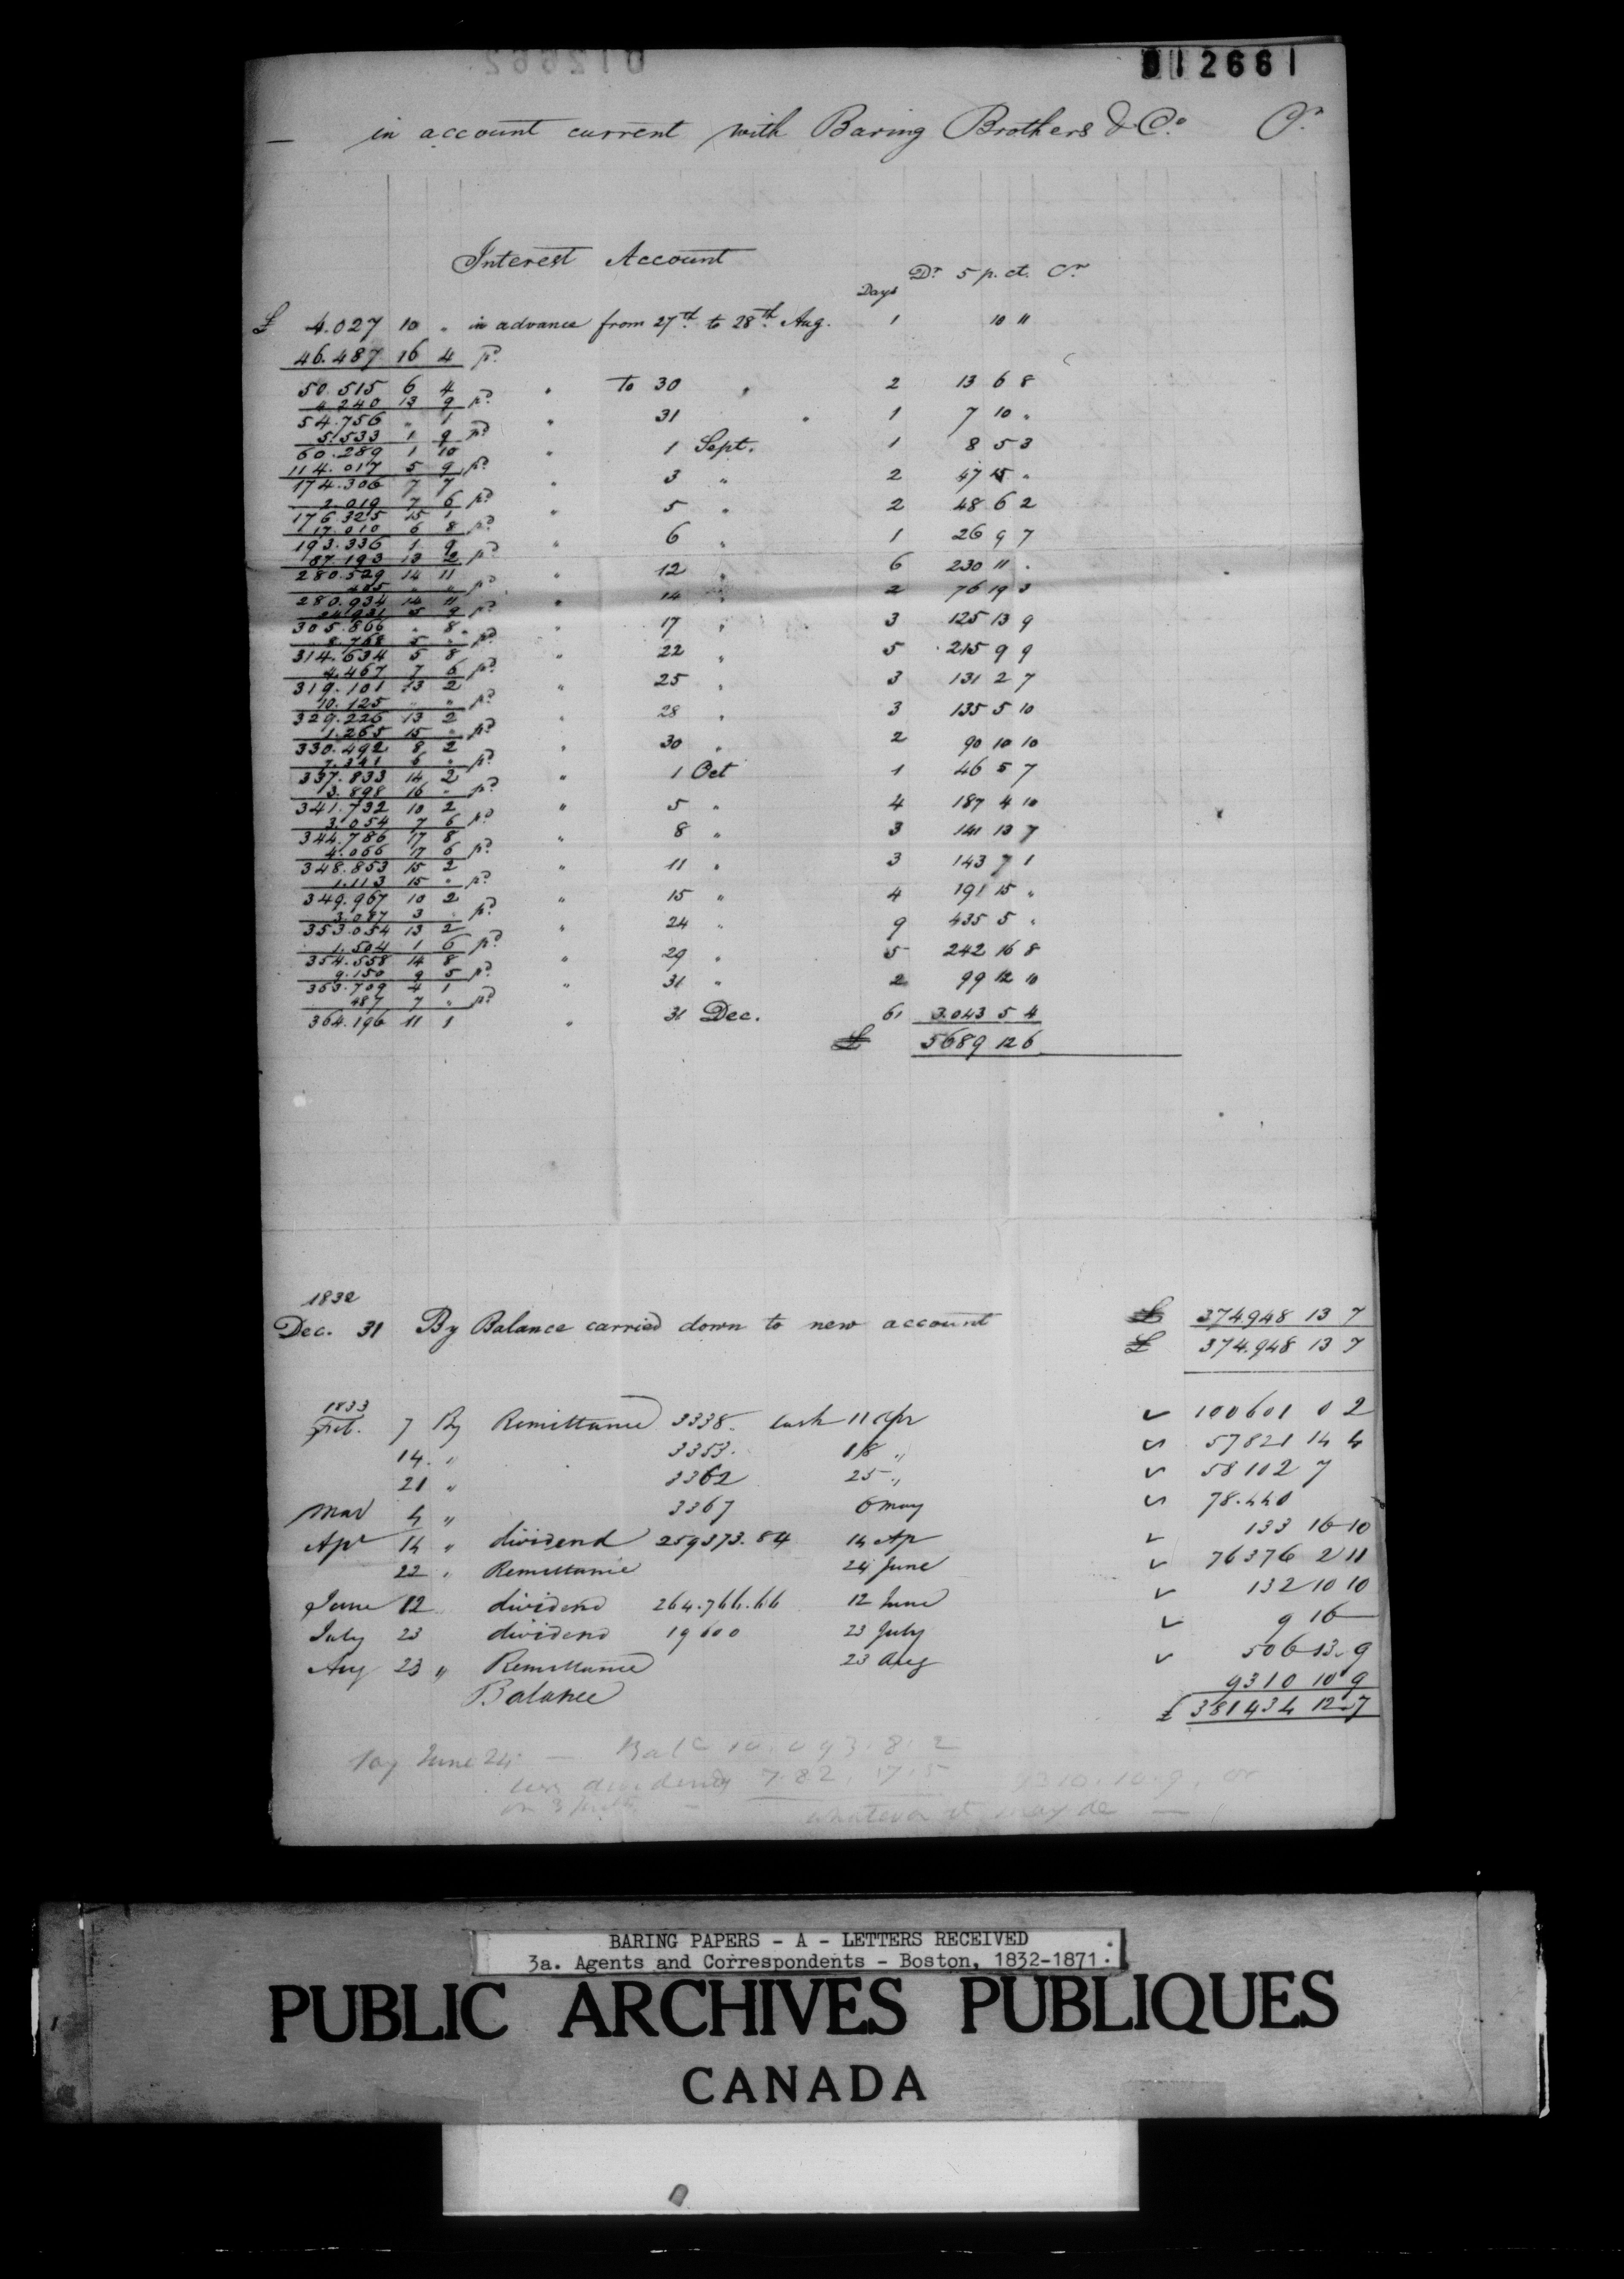 012662
012661
— in account current with Baring Brothers & Co. Cr
Interest Account
Days Dr 5 p. ct. Cr
£ 4.027 10 " in advance from 27th to 28th Aug. 1 10 11
46.487 16 4 pd
50.515 6 4 " To 30 " 2 13 6 8
4.240 13 9 pd
54.756 " 1 " 31 " 1 7 10 "
5.533 1 9 pd
60.289 1 10 " 1 Sept. 1 8 5 3
114.017 5 9 pd
174.306 7 7 " 3 " 2 47 15 "
2.019 7 6 pd
176.325 15 1 " 5 " 2 48 6 2
17.010 6 8 pd
193.336 1 9 " 6 " 1 26 9 7
87.193 13 2 pd
280.529 14 11 " 12 " 6 230 11 "
405 " " pd
280.934 14 11 " 14 " 2 76 19 3
24.931 5 9 pd
305.866 " 8 " 17 " 3 125 13 9
8.768 5 " pd
314.634 5 8 " 22 " 5 215 9 9
4.467 7 6 pd
319.101 13 2 " 25 " 3 131 2 7
10.125 " " pd
329.226 13 2 " 28 " 3 135 5 10
1.265 15 " pd
330.492 8 2 " 30 " 2 90 10 10
7.341 6 " pd
337.833 14 2 " 1 Oct 1 46 5 7
3.898 16 " pd
341.732 10 2 " 5 " 4 187 4 10
3.054 7 6 pd
344.786 17 8 " 8 " 3 141 13 7
4.066 17 6 pd
348.853 15 2 " 11 " 3 143 7 1
1.113 15 " pd
349.967 10 2 " 15 " 4 191 15 "
3.087 3 " pd
353.054 13 2 " 24 " 9 435 5 "
1.504 1 6 pd
354.558 14 8 " 29 " 5 242 16 8
9.150 9 5 pd
363.709 4 1 " 31 " 2 99 12 10
487 7 " pd
364.196 11 1 " 31 Dec. 61 3.043 5 4
£ 5689 12 6
1832
Dec. 31 By Balance carried down to new account £ 374948 13 7
£ 374.948 13 7
1833
Feb. 7 By Remittance 3338. Cash 11 Apr 100601 0 2
14. " 3353. 18 " 57821 14 4
21 " 3362 25 " 58102 7
Mar 4 " 3367 6 May 78.440
Apr 14 " dividend 259373.84 14 Ap 133 16 10
22 " Remittance 24 June 76376 2 11
June 12 dividend 264.766.66 12 June 132 10 10
July 23 dividend 19600 23 July 9 16 —
Aug 23 " Remittance 23 Aug 506 13. 9
Balance 9310 10 9
£ 381434 12 7
Say June 24 — Balce 10.093.8.2
less dividends 782.17.5 9310.10.9. or
on 3 — whatever it may be —
BARING PAPERS - A - LETTERS RECEIVED
3a. Agents and Correspondents - Boston, 1832-1871.
PUBLIC ARCHIVES PUBLIQUES
CANADA